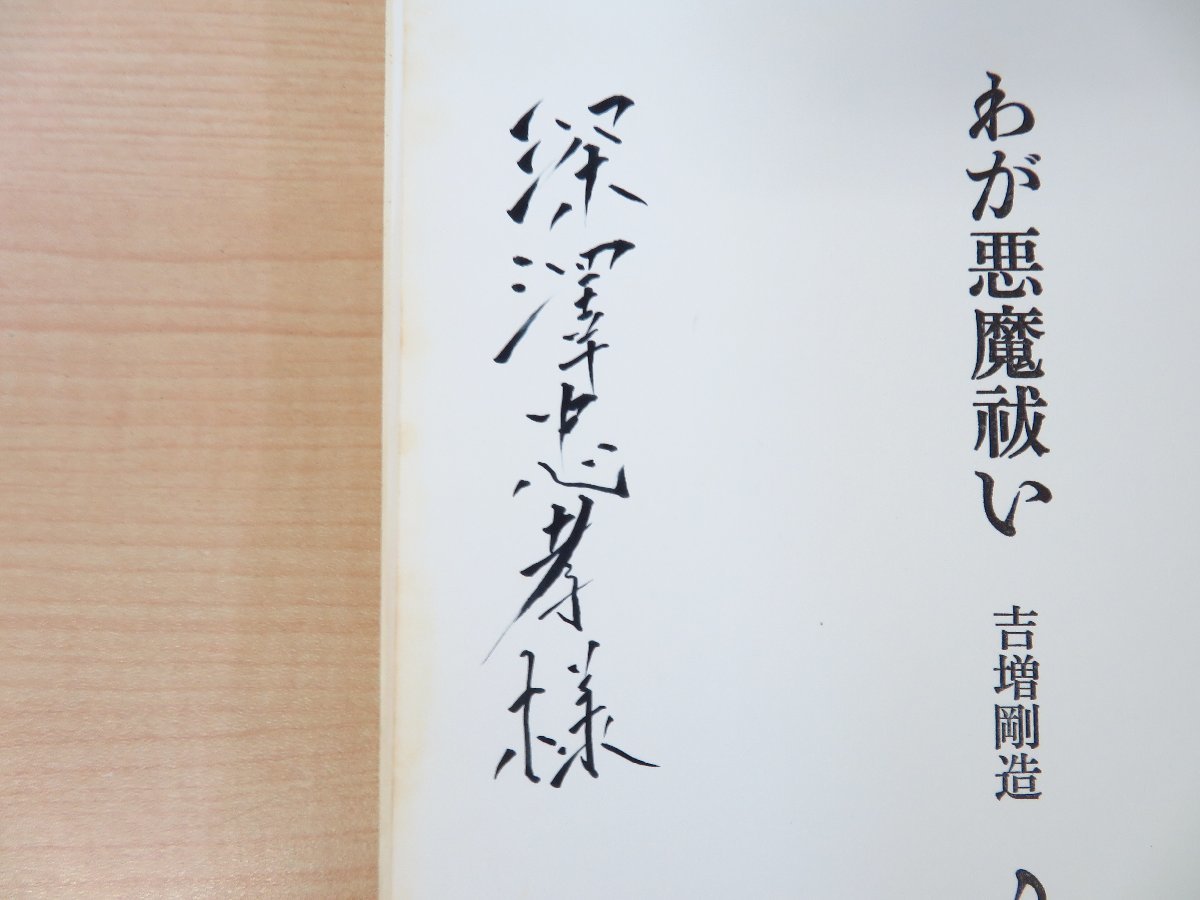 わが悪魔祓い
吉増剛造
深澤忠孝様